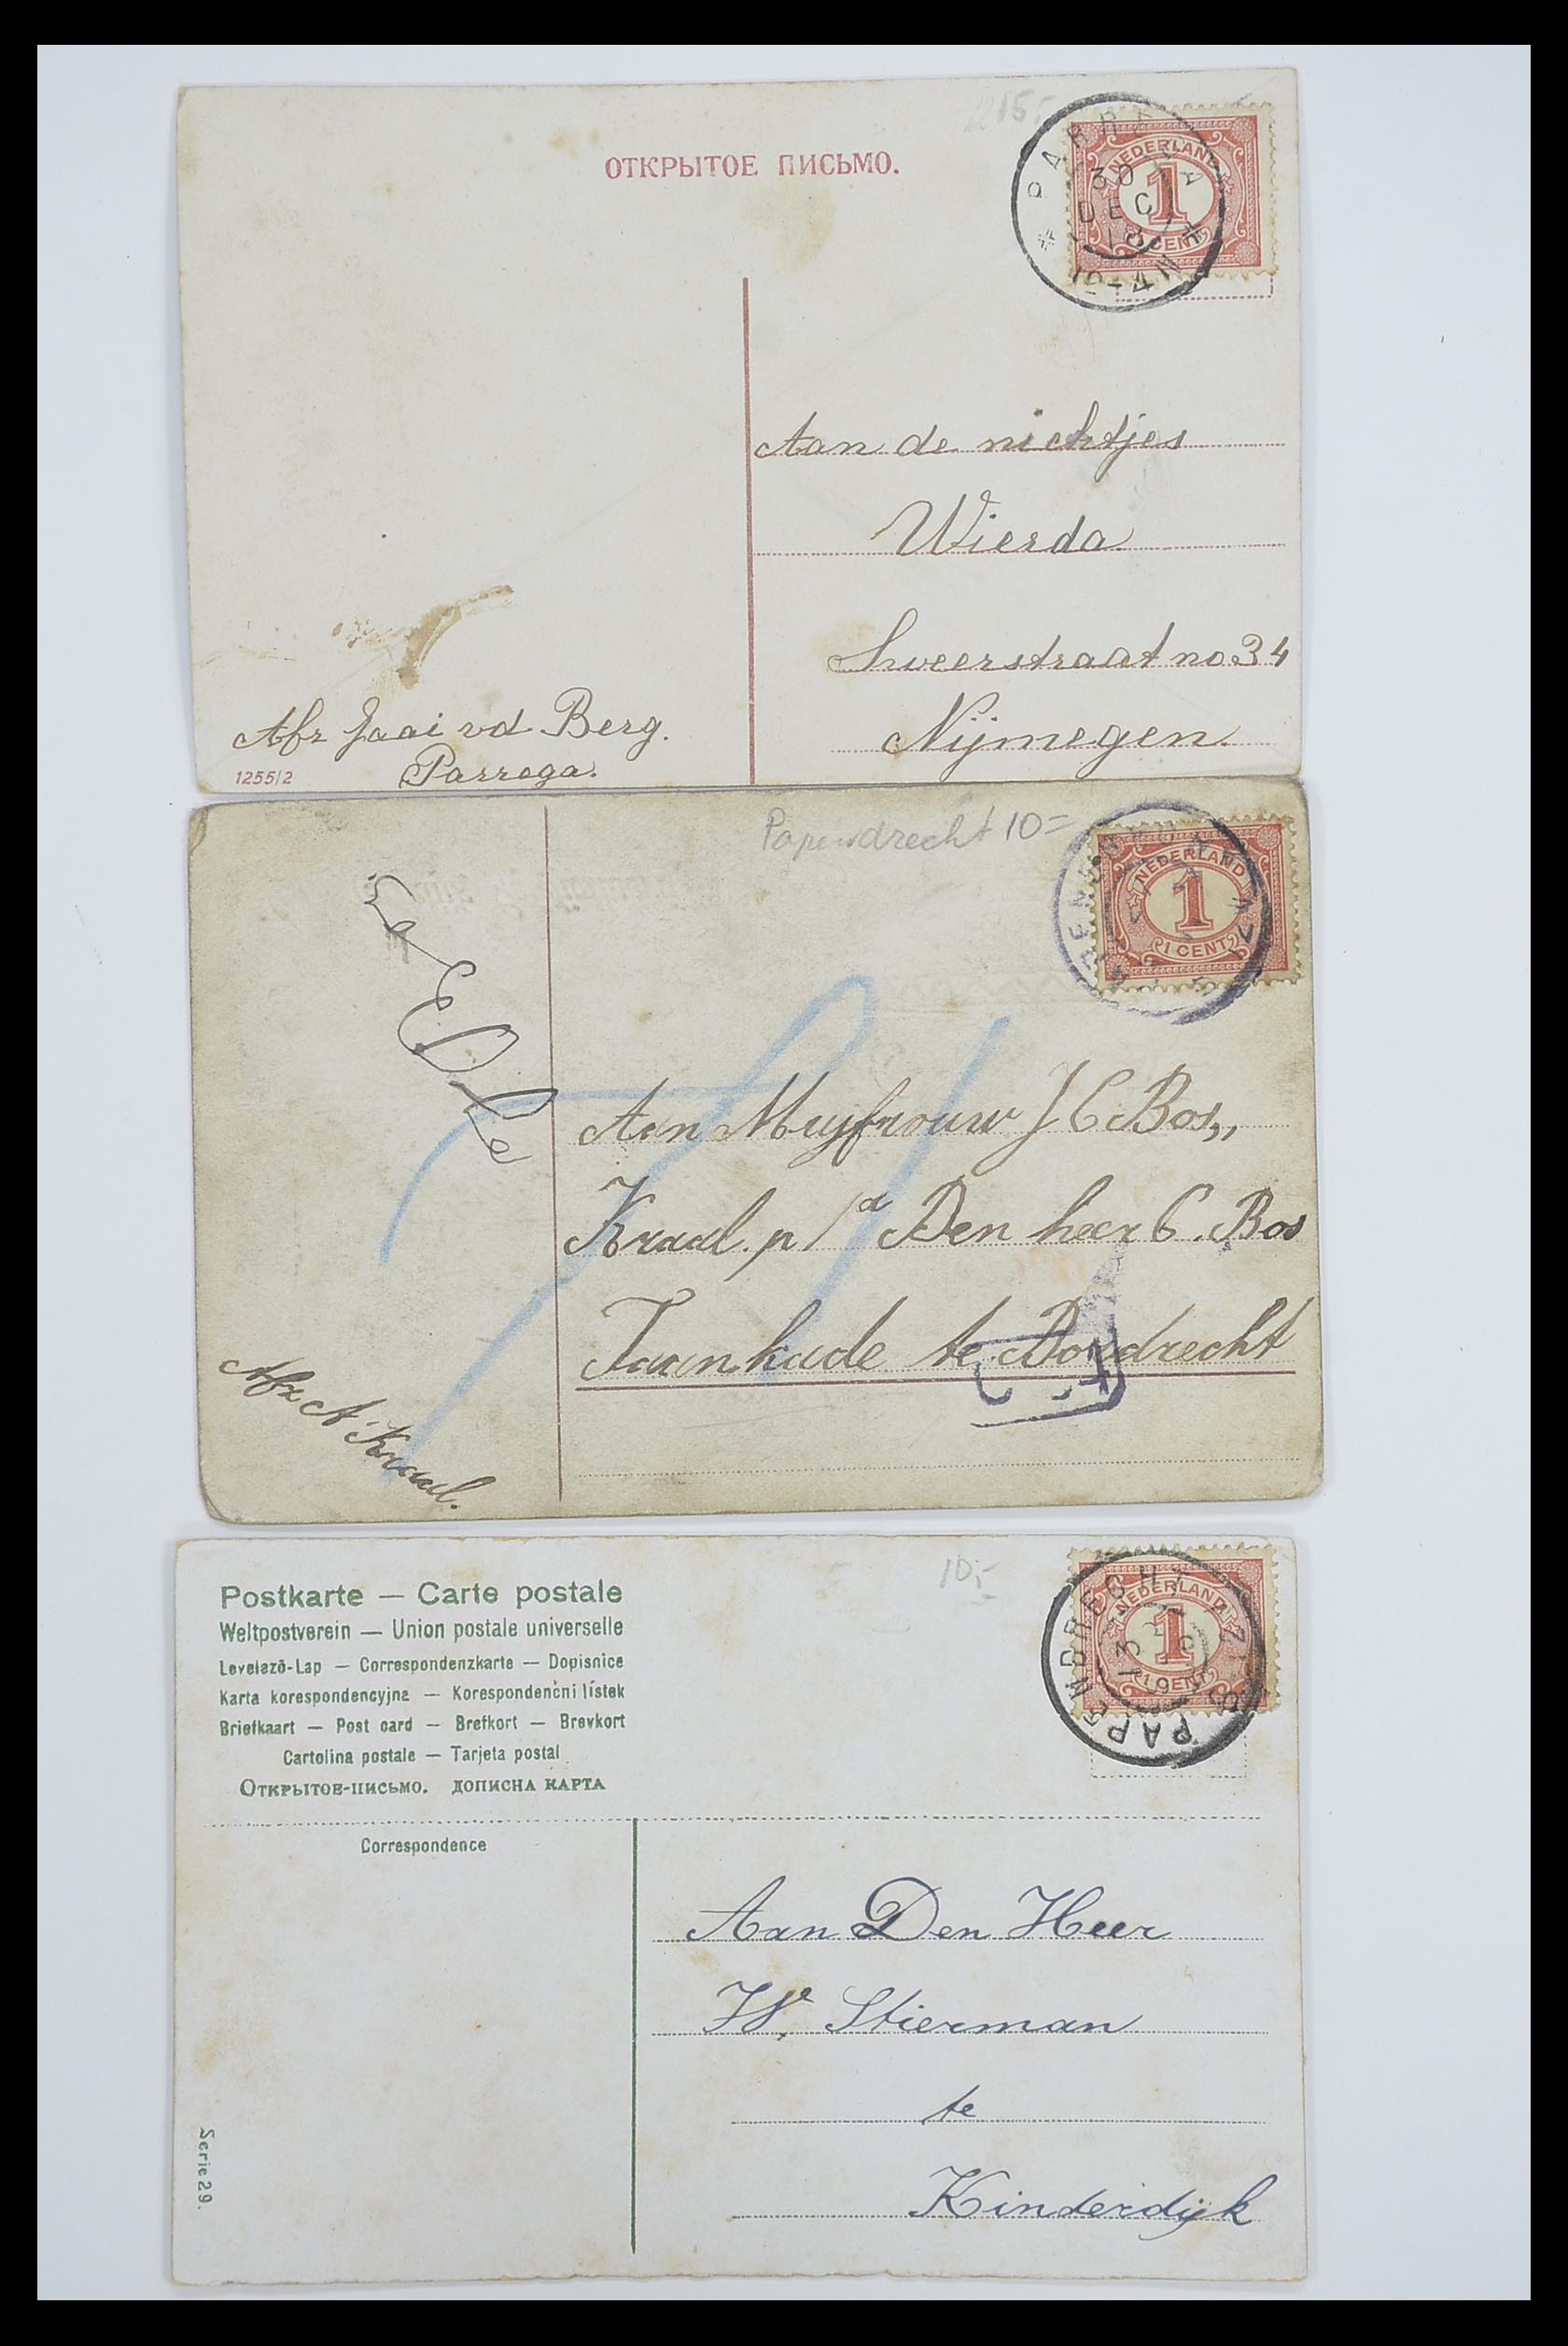 15,-
ОТКРЫТОЕ ПИСЬМО.
NEDERLAND
1
1 CENT
PARREGA
30
DEC
10-AN
Aan de nichtjes
Wierda
straat no 34
Nijmegen.
Afz Jaai vd Berg.
Parrega.
1255/2
Papendrecht 10=
NEDERLAND
1
1 CENT
Aan Mejufrouw J C Bos,,
Kraal. p/a Den heer C. Bos
kade te Dordrecht
Afz A Kraal.
10,-
Postkarte — Carte postale
Weltpostverein — Union postale universelle
Levelező-Lap — Correspondenzkarte — Dopisnice
Karta korespondencyjna — Korespondenčni lístek
Briefkaart — Post card — Brefkort — Brevkort
Cartolina postale — Tarjeta postal
Открытое-письмо. дописна карта
NEDERLAND
1
1 CENT
PAPENDRECHT
Correspondence
Aan Den Heer
W. Stierman
te
Kinderdijk
Serie 29.